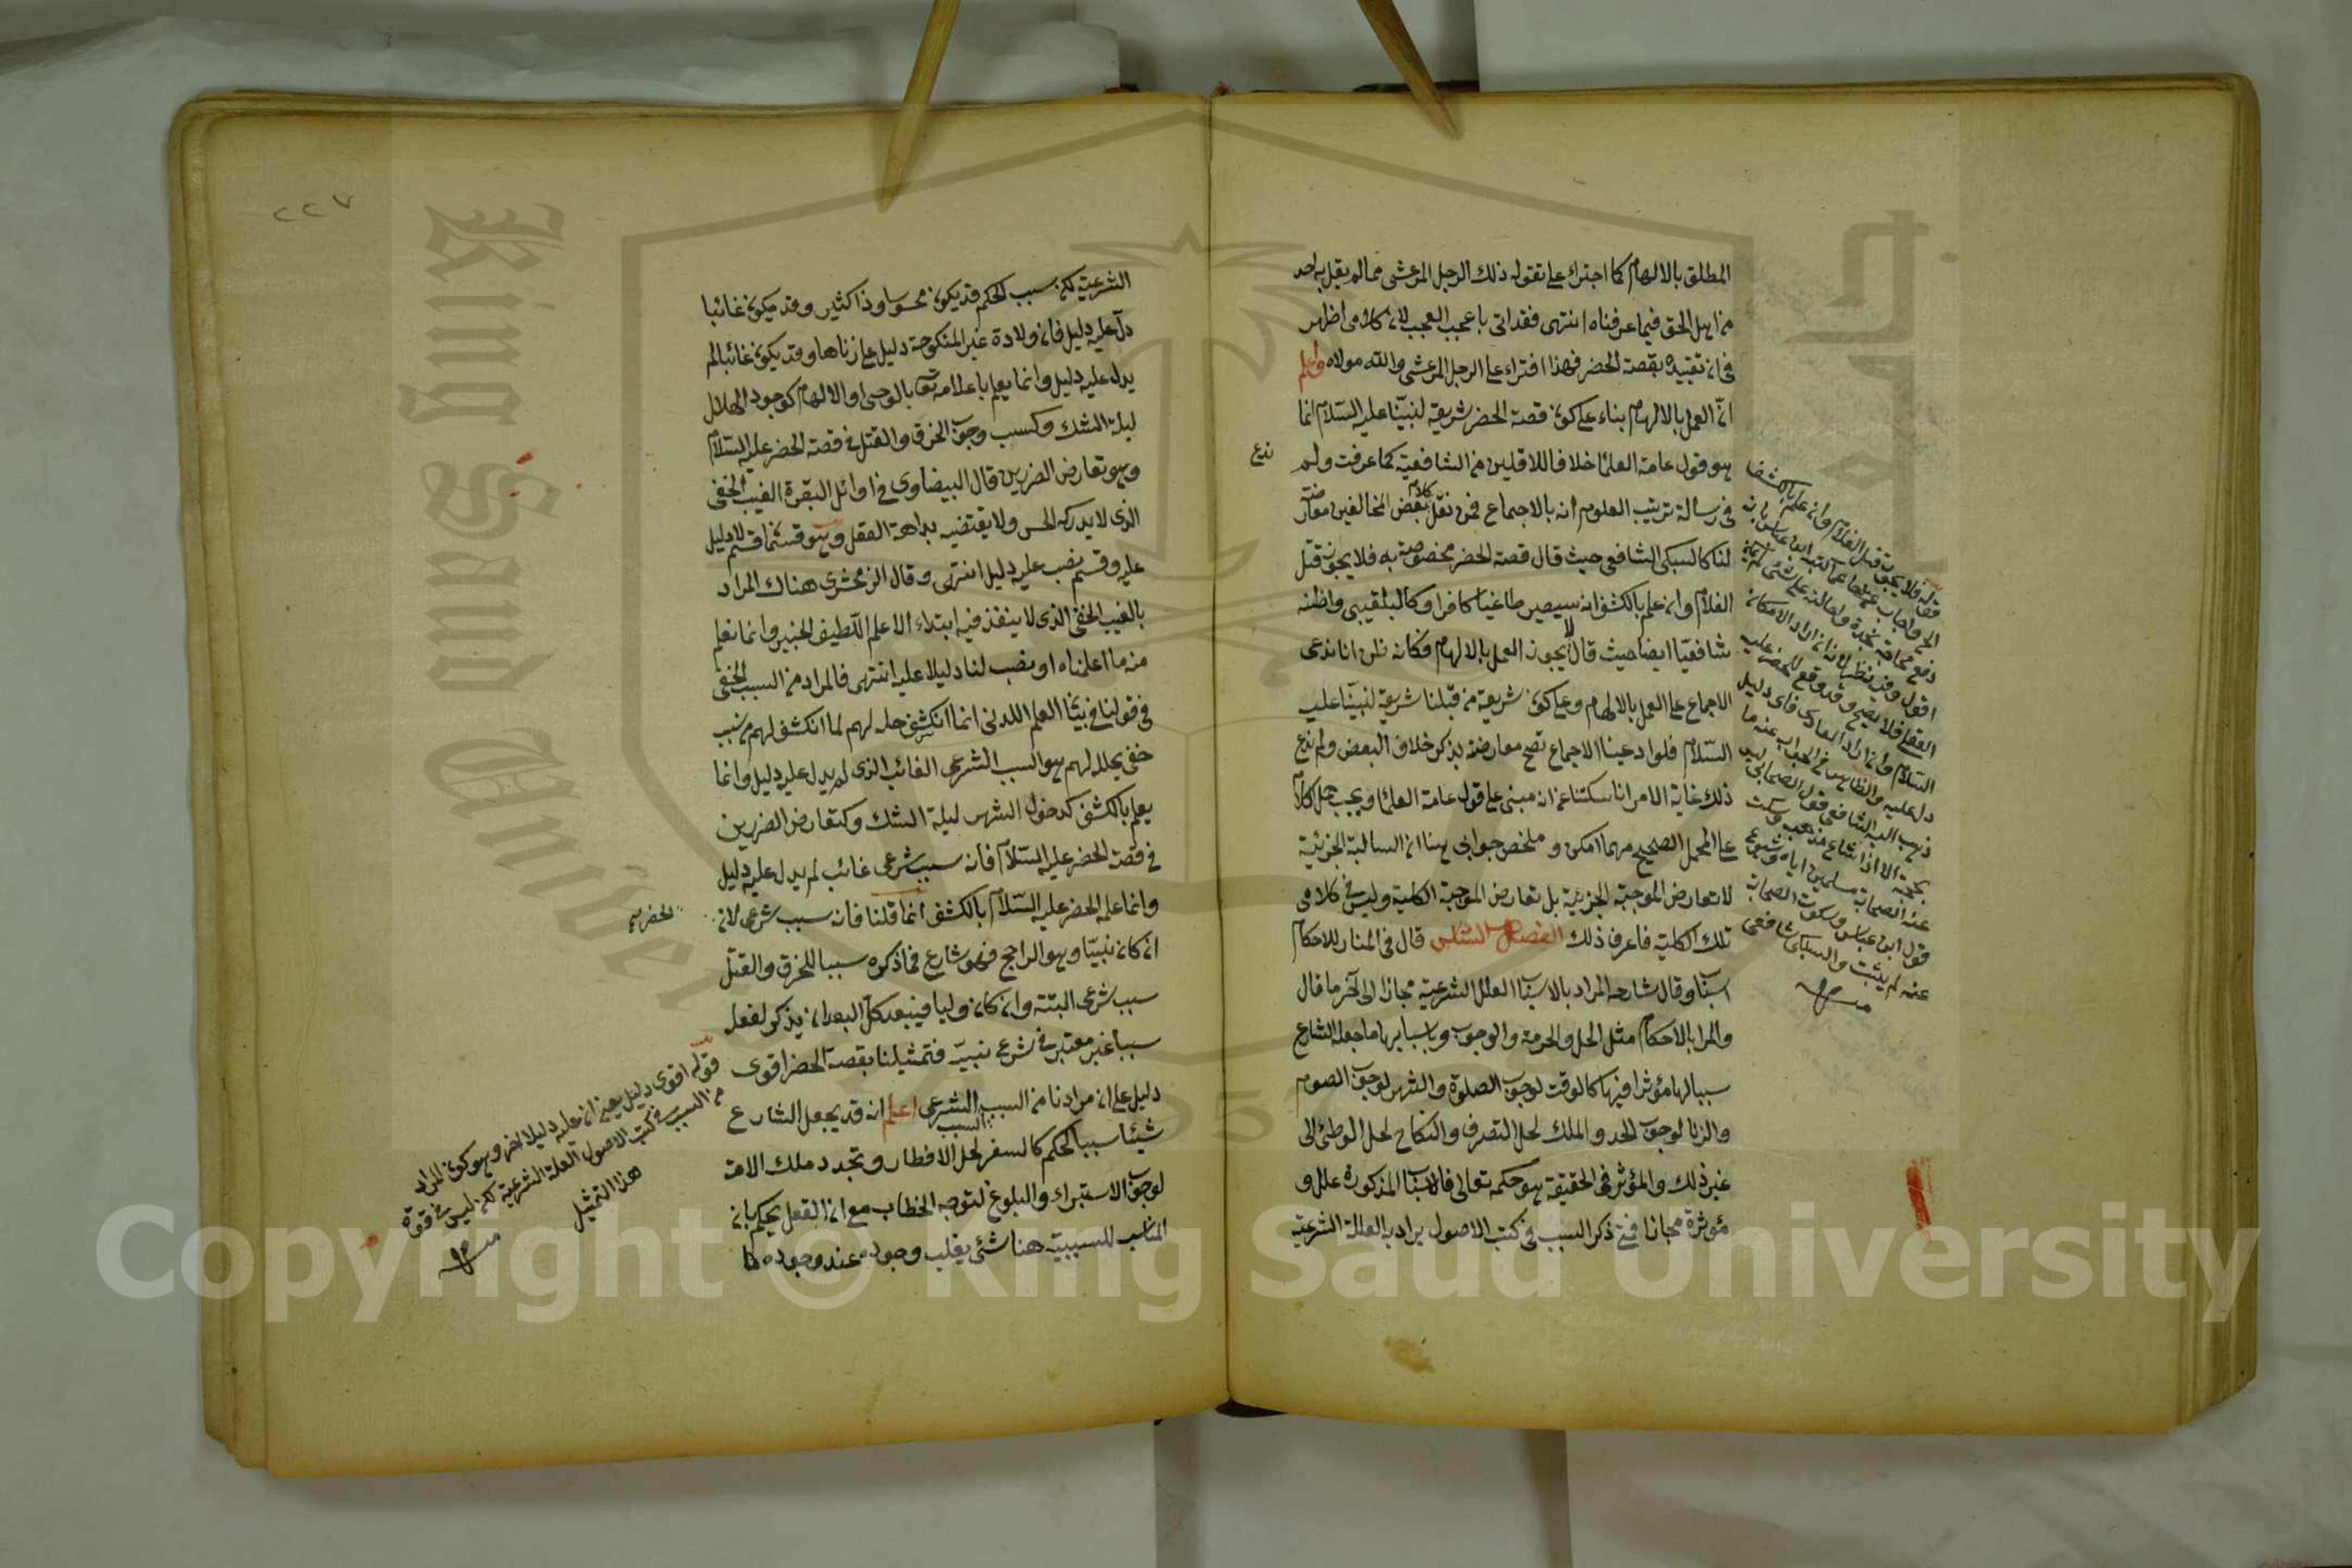 المطلق بالالهام كما اجترك على تقوله ذلك الرجل المرعشى مما لم يقل به احد
من اهل الحق فيما عرفناه انتهى فقد اتى باعجب العجب لان كلامى اظهر
فى ان تقييده بقصة الخضر فهذا افتراء على الرجل المرعشى والله مولاه واعلم
ان العمل بالالهام بناء على كون قصة الخضر شريعة لنبينا عليه السلام انما
هو قول عامة العلماء خلافا للاقلين من الشافعية كما عرفت ولم
ندع
فى رسالة ترتيب العلوم انه بالاجماع فمن نقل كلام بعض المخالفين معارضة
لنا كالسبكى الشافعى حيث قال قصة الخضر مخصوصة به فلا يجوز قتل
الغلام وان علم بالكشف انه سيصير طاغيا كافرا وكالبلقينى واظنه
شافعيا ايضا حيث قال لا يجوز العمل بالالهام فكانه ظن انا ندعى
الاجماع على العمل بالالهام وعلى كون شريعة من قبلنا شريعة لنبينا عليه
السلام فلو ادعينا الاجماع تصح معارضته بذكر خلاف البعض ولم ندع
ذلك غاية الامر انا سكتنا عن انه مبنى على قول عامة العلماء ويجب حمل كلام
على المحمل الصحيح مهما امكن وملخص جوابى هنا ان السالبة الجزئية
لا تعارض الموجبة الجزئية بل تعارض الموجبة الكلية وليس فى كلامى
تلك الكلية فاعرف ذلك الفصل السادس قال فى المنار للاحكام
اسباب وقال شارحه المراد بالاسباب العلل الشرعية مجازا الى آخر ما قال
والمراد بالاحكام مثل الحل والحرمة والوجوب وباسبابها ما جعله الشارع
سببا لها مؤثرا فيها كالوقت لوجوب الصلوة والشهر لوجوب الصوم
والزنا لوجوب الحد والملك لحل التصرف والنكاح لحل الوطئ الى
غير ذلك والمؤثر فى الحقيقة هو حكمه تعالى فالاسباب المذكورة علل و
مؤثرة مجازا فمتى ذكر السبب فى كتب الاصول يراد به العلة الشرعية
قوله فلا يجوز قتل الغلام وان علم بالكشف
السلام وان اراد العادى فاى دليل
دل عليه والظاهر فى الجواب عنه ما
ذهب اليه الشافعى فقول الصحابى ليس
بحجة الا اذا شاع مذهبه وسكت
عنه الصحابة مسلمين اياه وشيوع
قول ابن عباس وسكوت الصحابة
عنه لم يثبت والسبكى شافعى
٢٢٧
الشرعية لكن سبب الحكم قد يكون محسوسا وذا كثير وقد يكون غائبا
دل عليه دليل فان ولادة غير المنكوحة دليل على زناها وقد يكون غائبا لم
يدل عليه دليل وانما يعلم باعلامه تعالى بالوحى او الالهام كوجود الهلال
ليلة الشك وكسبب وجوب الخرق والقتل فى قصة الخضر عليه السلام
وهو تعارض الضررين قال البيضاوى فى اوائل البقرة الغيب الخفى
الذى لا يدركه الحس ولا يقتضيه بداهة العقل وهو قسمان قسم لا دليل
عليه وقسم نصب عليه دليل انتهى وقال الزمخشرى هناك المراد
بالغيب الخفى الذى لا ينفذ فيه ابتداء الا علم اللطيف الخبير وانما نعلم
منه ما اعلمناه او نصب لنا دليلا عليه انتهى فالمراد من السبب الخفى
فى قولنا فى بيان العلم اللدنى انما انكشف حله لهم لما انكشف لهم من سبب
خفى يحلله لهم هو السبب الشرعى الغائب الذى لم يدل عليه دليل وانما
يعلم بالكشف كدخول الشهر ليلة الشك وكتعارض الضررين
فى قصة الخضر عليه السلام فانه سبب شرعى غائب لم يدل عليه دليل
وانما علمه الخضر عليه السلام بالكشف انما قلنا فانه سبب شرعى لان
الخضر
ان كان نبيا وهو الراجح فهو شارع فما ذكره سببا للخرق والقتل
سبب شرعى البتة وان كان وليا فيبعد كل البعد ان يذكر لفعله
سببا غير معتبر فى شرع نبيه فتمثيلنا بقصة الخضر اقوى
دليل على ان مرادنا من السبب السبب الشرعى اعلم انه قد يجعل الشارع
شيئا سببا لحكم كالسفر لحل الافطار وتجدد ملك الامة
لوجوب الاستبراء والبلوغ لتوجه الخطاب مع ان العقل يحكم بان
المناسب للسببية هنا شئ يغلب وجوده عند وجوده
قوله اقوى دليل يعنى ان عليه دليلا اخر وهو كون المراد
من السبب فى كتب الاصول العلة الشرعية لكن ليس فى قوة
هذا التمثيل
King Saud University
1957
Copyright © King Saud University